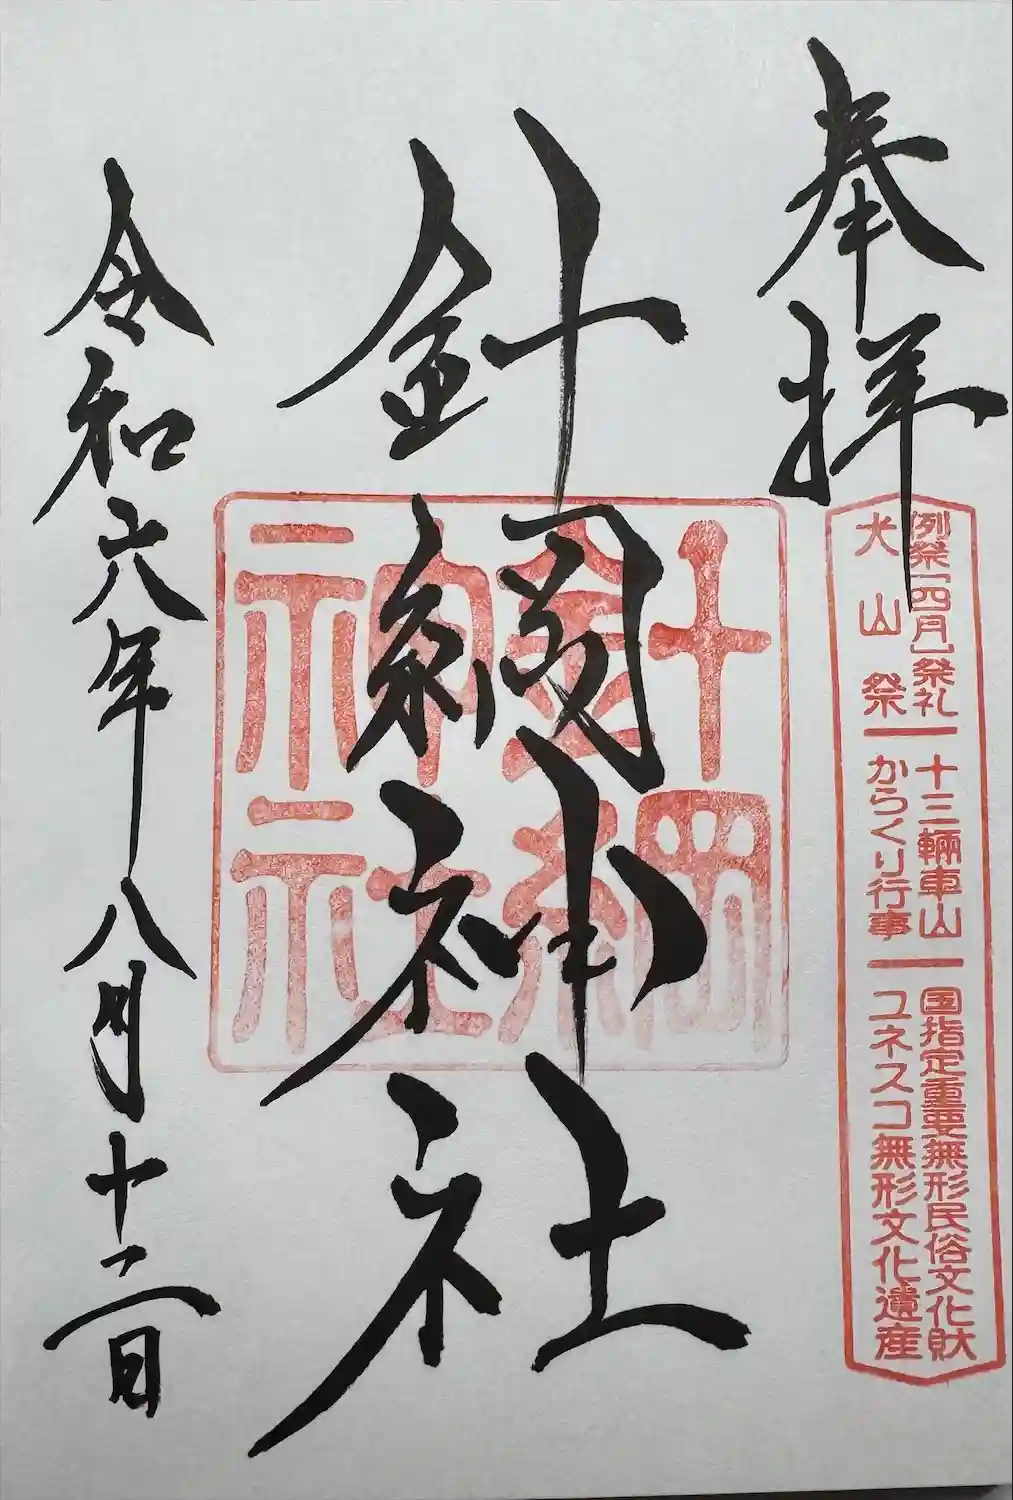 奉拝
例祭「四月」祭礼 十三輛車山 国指定重要無形民俗文化財
犬山祭 からくり行事 ユネスコ無形文化遺産
針綱神社
針綱神社
令和六年八月十二日